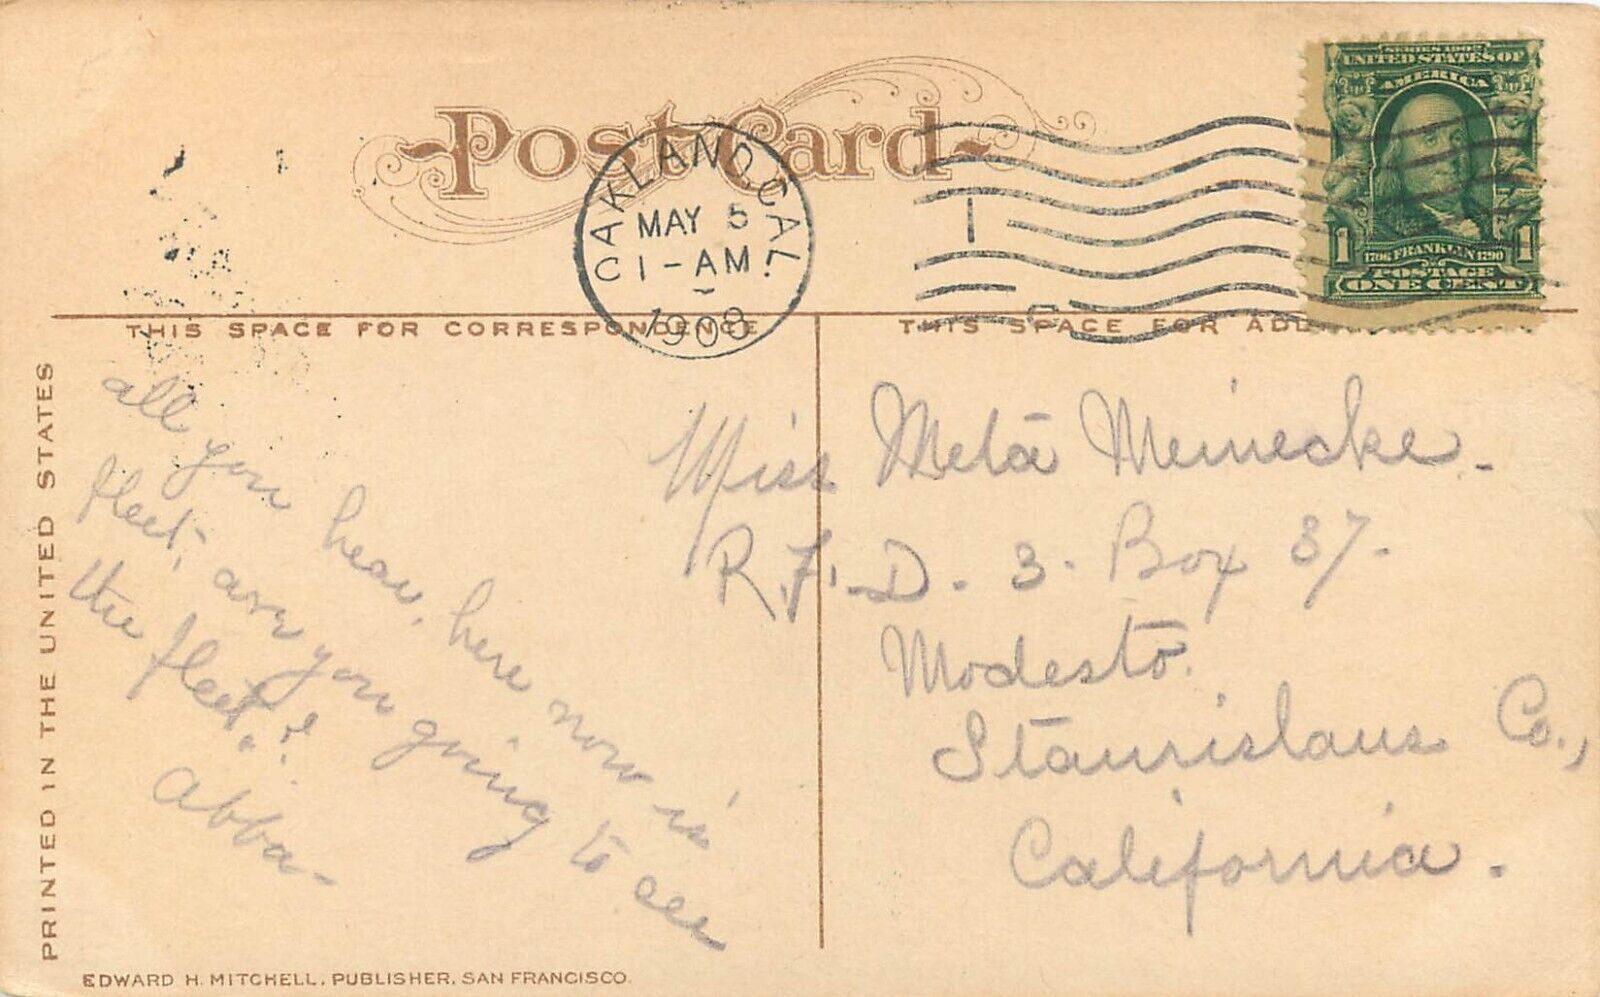 Post Card
OAKLAND, CAL.
MAY 5
1-AM
1908
SERIES 1902
UNITED STATES OF
AMERICA
1 1706 FRANKLIN 1790 1
POSTAGE
ONE CENT
THIS SPACE FOR CORRESPONDENCE
THIS SPACE FOR ADD
PRINTED IN THE UNITED STATES
all you hear, here now is
fleet, are you going to see
the fleet"?
Abba-
Miss Meta Meinecke.
R.F.D. 3. Box 37.
Modesto.
Stanislaus Co.,
California.
EDWARD H. MITCHELL, PUBLISHER, SAN FRANCISCO.